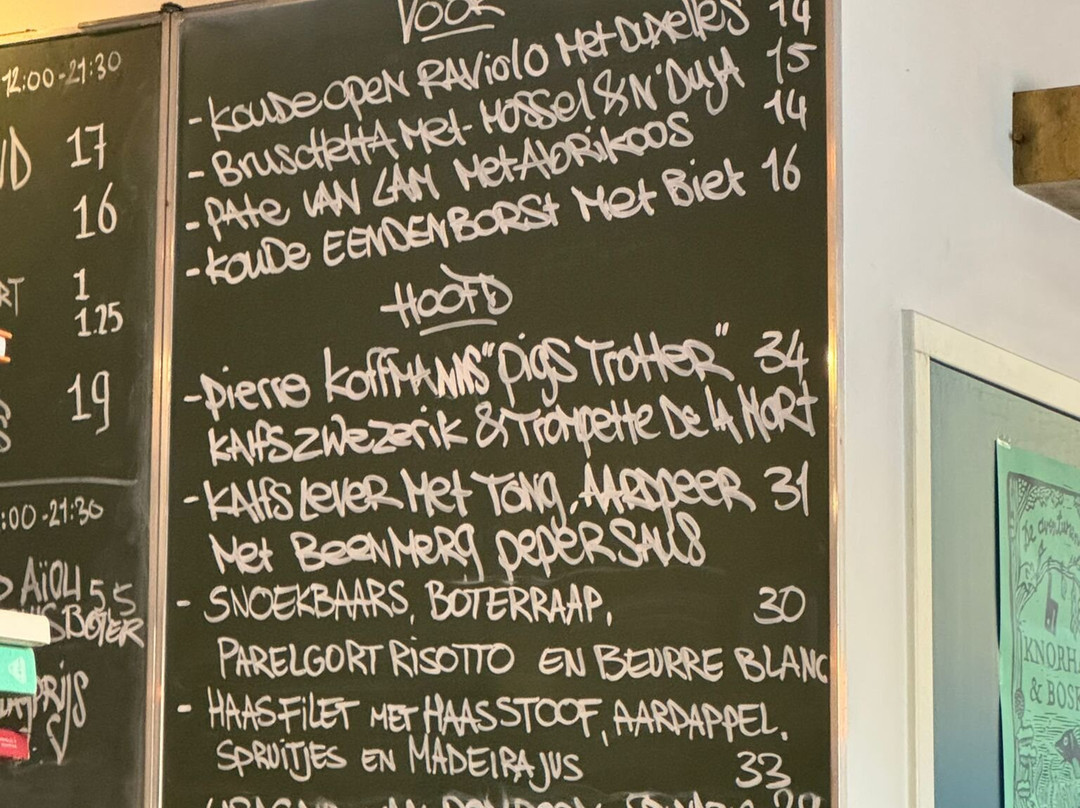 12:00-21:30
17
16
1
1.25
19
:00-21:30
AÏOLI 5.5
BOTER
PRIJS
VOOR
- KOUDE OPEN RAViolo Met DUXELLES 14
- BRUSCHETTA Met MOSSel & N'DUJA 15
- PATE VAN LAM Met ABRIKOOS 14
- KOUDE EENDENBORST Met Biet 16
HOOFD
- Pierre KoffMANNS "Pigs TROTTER" 34
KALFSZWEZERIK & TROMPETTE De LA MORT
- KALFSLEVER Met TONG, AARDPEER 31
Met BEENMERG PEPERSAUS
- SNOEKBAARS, BOTERRAAP, 30
PARELGORT RISOTTO EN BEURRE BLANC
- HAASFILET MET HAASSTOOF, AARDAPPEL,
SPRUITJES EN MADEIRAJUS 33
De avonturen
KNORHA
& BOS